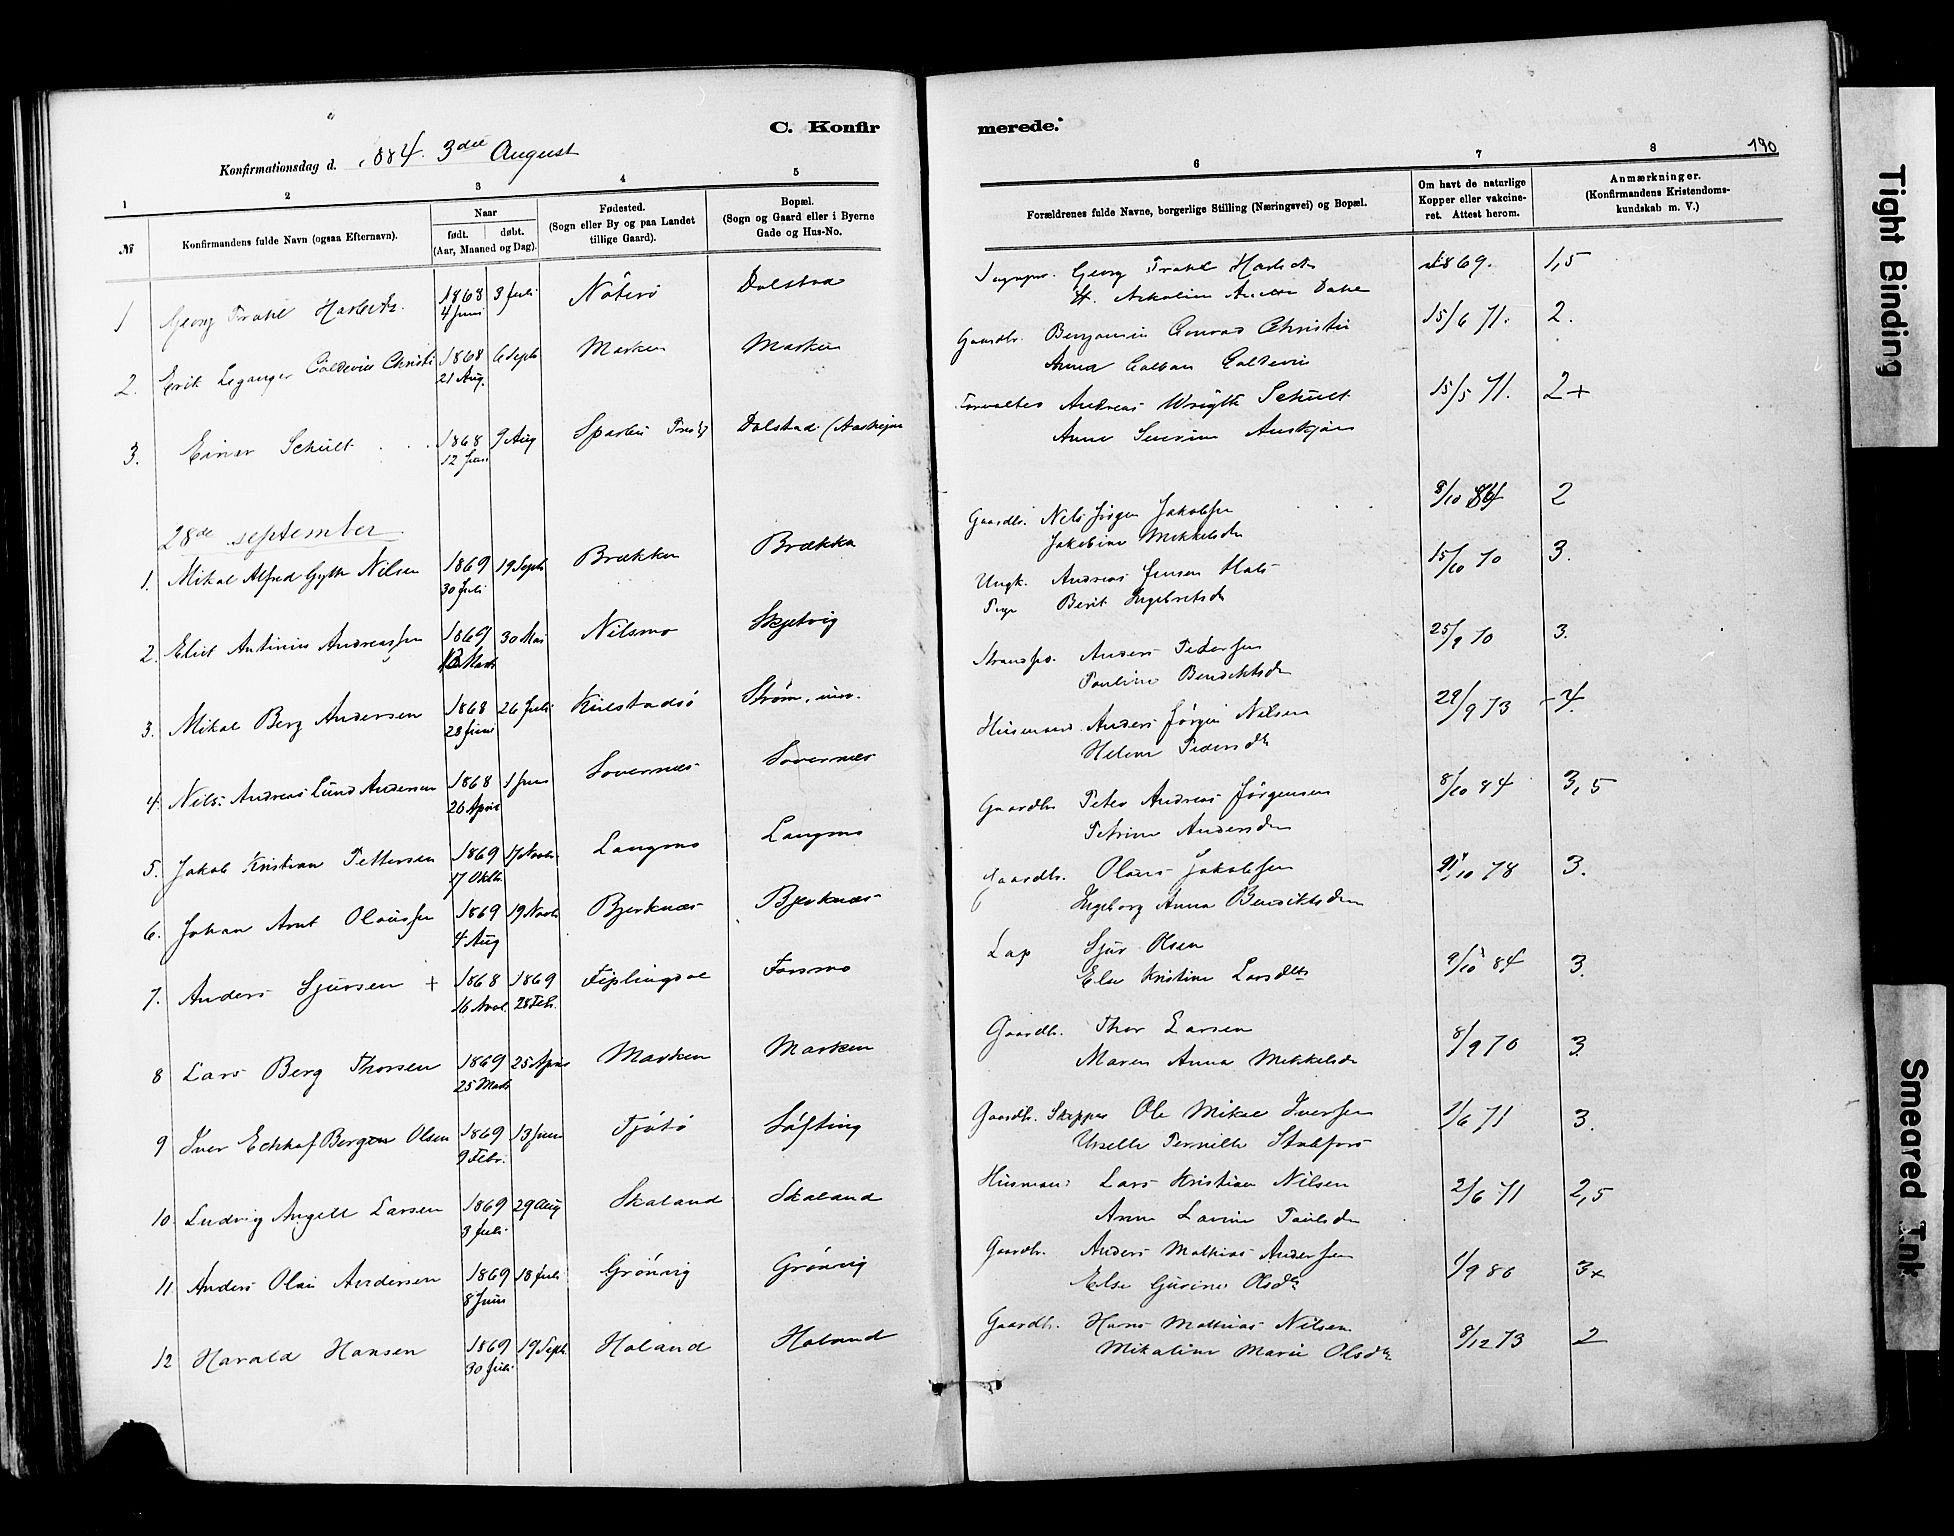 C. Konfirmerede.
190
Konfirmationsdag d. 1884. 3die August
1 2 3 4 5 6 7 8
№
Konfirmandens fulde Navn (ogsaa Efternavn).
Naar
født. døbt.
(Aar, Maaned og Dag).
Fødested.
(Sogn eller By og paa Landet
tillige Gaard).
Bopæl.
(Sogn og Gaard eller i Byerne
Gade og Hus-No.
Forældrenes fulde Navne, borgerlige Stilling (Næringsvei) og Bopæl.
Om havt de naturlige
Kopper eller vakcine-
ret. Attest herom.
Anmærkninger.
(Konfirmandens Kristendoms-
kundskab m. V.)
1 Georg 1868 3 Juli Nøterø Dolstad Georg 1869. 1,5
4 Juni
2. Erik Leganger Coldevin Christi 1868 6 Septb Marken Marken Gaardbr. Benjamin Conrad Christie 15/6 71. 2.
21 Aug. Anna Colban Coldevin
3. Einar Schult 1868 9 Aug Dolstad Forvalter Andreas Schult 15/5 71. 2+
12 Juni Anne Severine
28de september
1. Mikal Alfred Gytte Nilsen 1869 19 Septb Brækken Brækka Gaardbr. Nels Jørgen Jakobsen 8/10 84 2
30 Juli Jakobine Mikkelsdr
2. Eliot Antinius Andreassen 1869 30 Mai Nilsmo Skjetvig Ungk. Andreas Jensen Hals 15/10 70 3.
Marts Pige Berit Ingebretsdr
3. Mikal Berg Andersen 1868 26 Juli Kulstadsø Strøm Anders Pedersen 25/9 70 3.
28 Juni Pauline Bendiktsdr
4. Nils Andreas Lund Andersen 1868 1 Juni Sovernæs Sovernæs Husmand Anders Jørgen Nilsen 29/9 73 4.
26 April Helene Pedersdr
5. Jakob Kristian Pettersen 1869 17 Novb. Langmo Langmo Gaardbr Peter Andreas Jørgensen 8/10 84 3,5
17 Oktb. Petrine Andersdr
6. Johan Arnt Olaussen 1869 19 Novb Bjerknæs Bjerknæs Gaardbr. Olaus Jakobsen 3.
4 Aug Ingeborg Anna Bendiktsdr
7. Anders Sjursen + 1868 1869 Fiplingdal Forsmo Lap Sjur Olsen 9/10 84 3.
16 Novb. 28 Febr. Else Kristine Larsdtr
8 Lars Berg Thorsen 1869 25 April Marken Marken Gaardbr. Thor Larsen 8/9 70 3.
25 Marts Maren Anna Mikkelsdr
9 Iver Bergen Olsen 1869 13 Juni Tjøtø Søfting Gaardbr. Skipper Ole Mikal Iversen 71 3.
9 Febr. Pernille
10. Ludvig Angell Larsen 1869 29 Aug Skaland Skaland Husmand Lars Kristian Nilsen 2/6 71 2,5
3 Juli Anne Lavine Paulsdr
11 Anders Olai Andersen 1869 18 Juli Grønvig Grønvig Gaardbr. Anders Mathias Andersen 3+
8 Juni Else Gurine Olsdr
12 Harald Hansen 1869 19 Septb. Holand Holand Gaardbr. Hans Mathias Nilsen 8/12 73 2
30 Juli Mikaline Marie Olsdr
Tight Binding
Smeared Ink